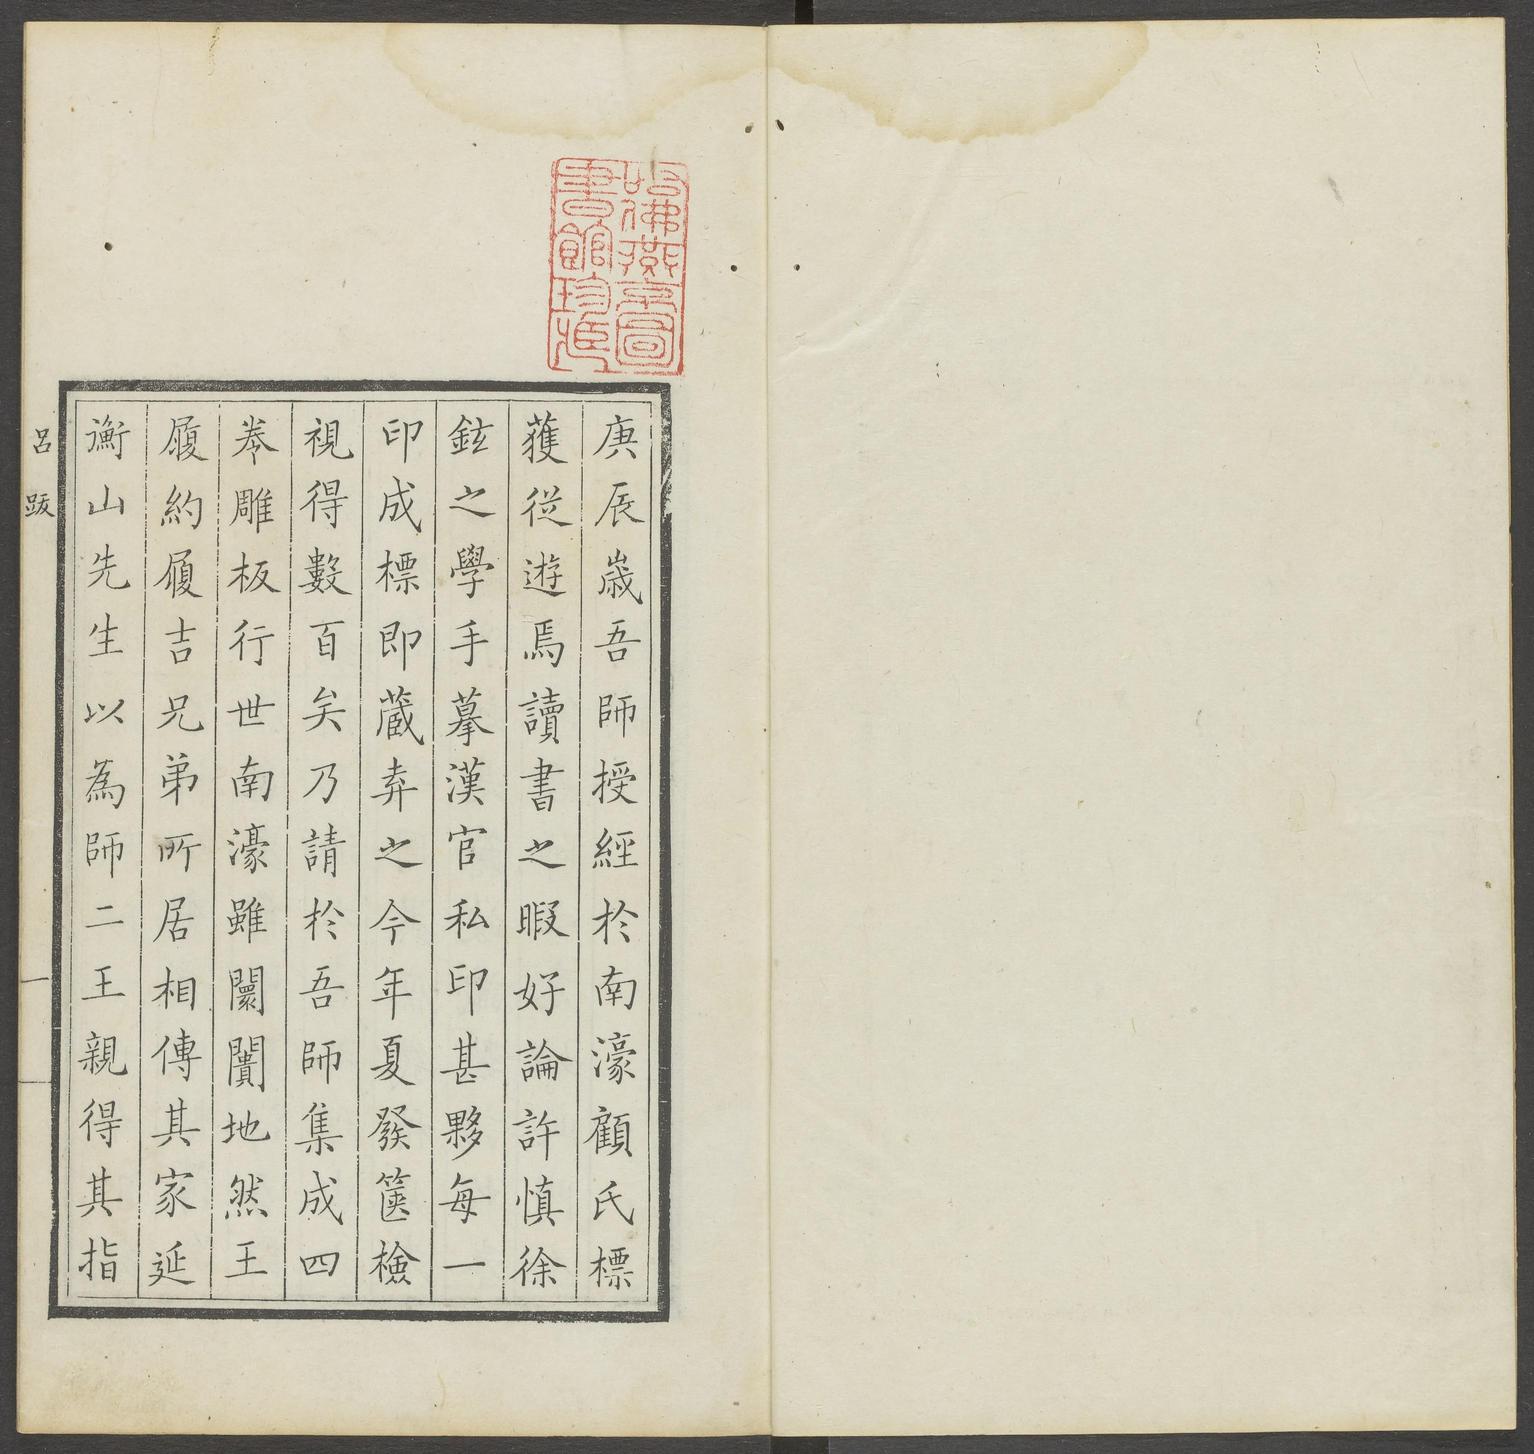 哈佛燕京圖
書館珍藏
庚辰歲吾師授經於南濠顧氏標
獲從遊焉讀書之暇好論許慎徐
鉉之學手摹漢官私印甚夥每一
印成標即藏弆之今年夏發篋檢
視得數百矣乃請於吾師集成四
卷雕板行世南濠雖闤闠地然王
履約履吉兄弟所居相傳其家延
衡山先生以為師二王親得其指
呂跋
一